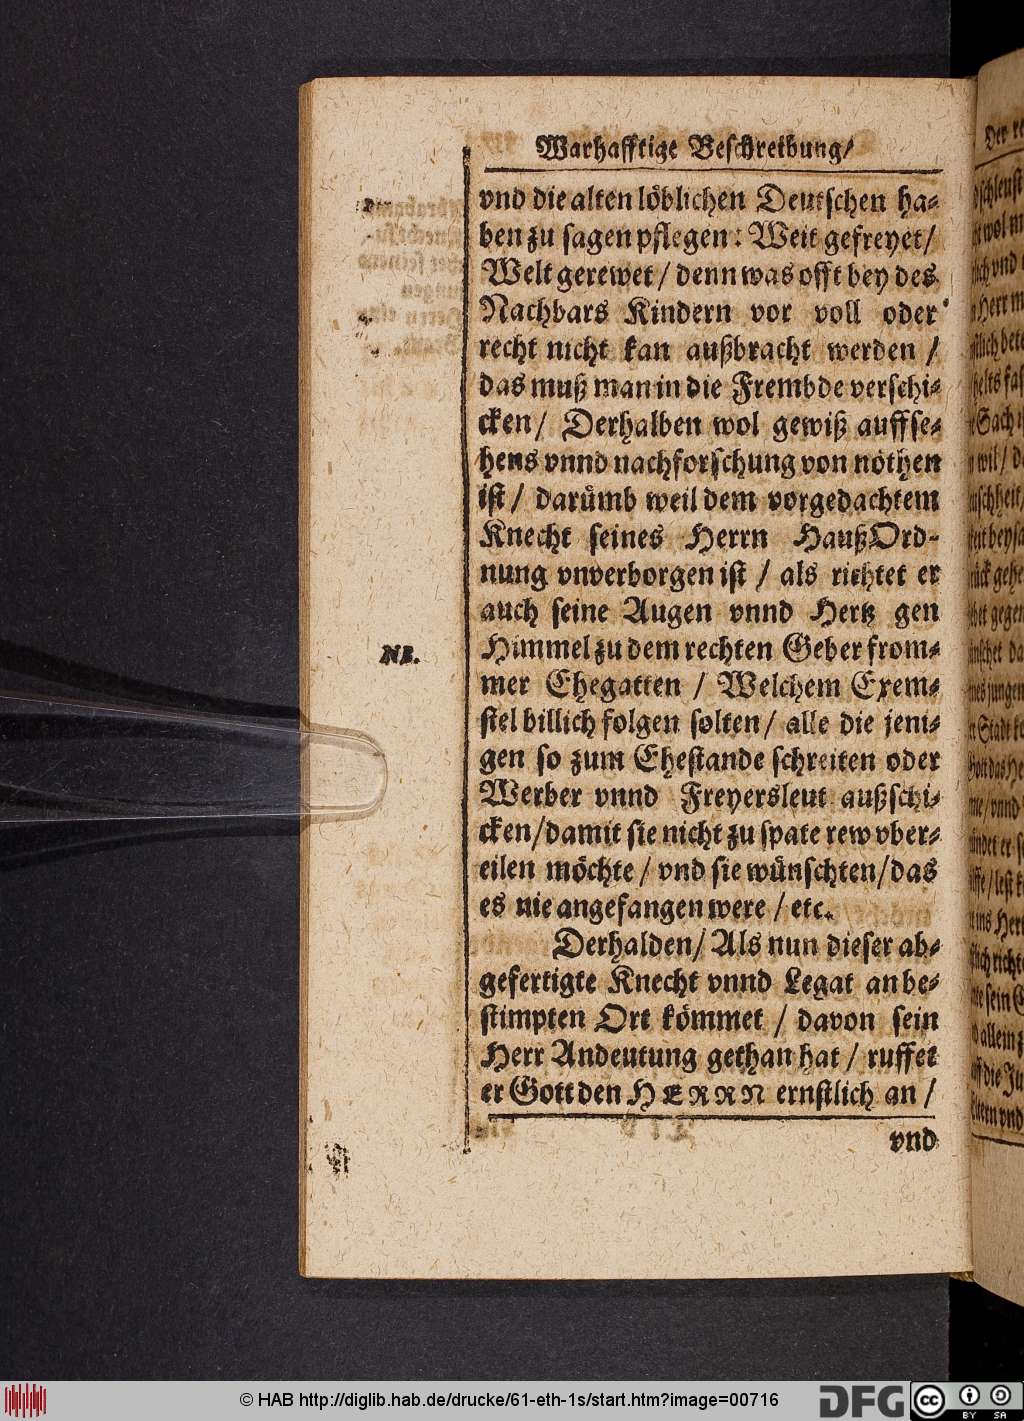 Warhafftige Beschreibung/
vnd die alten löblichen Deutschen ha-
ben zu sagen pflegen: Weit gefreyet/
Welt gerewet / denn was offt bey des
Nachbars Kindern vor voll oder
recht nicht kan außbracht werden /
das muß man in die Frembde verschi-
cken / Derhalben wol gewiß auffse-
hens vnnd nachforschung von nöthen
ist / darümb weil dem vorgedachtem
Knecht seines Herrn HaußOrd-
nung vnverborgen ist / als richtet er
auch seine Augen vnnd Hertz gen
Himmel zu dem rechten Geber from-
mer Ehegatten / Welchem Exem-
stel billich folgen solten / alle die jeni-
gen so zum Ehestande schreiten oder
Werber vnnd Freyersleut außschi-
cken/damit sie nicht zu spate rew vber-
eilen möchte / vnd sie wünschten/das
es nie angefangen were / etc.
Derhalden/ Als nun dieser ab-
gefertigte Knecht vnnd Legat an be-
stimpten Ort kömmet / davon sein
Herr Andeutung gethan hat / ruffet
er Gott den HERRN ernstlich an /
vnd
NB.
© HAB http://diglib.hab.de/drucke/61-eth-1s/start.htm?image=00716
DFG
cc
BY SA